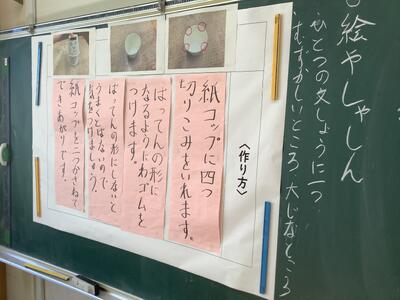 絵やしゃしん
ひとつの文しょうに一つ
むずかしいところ、大じなところ
〈作り方〉
紙コップに四つ
切りこみをいれます。
ばってんの形に
なるようにわゴムを
つけます。
ばってんの形にしないと
うまくとばないので
気をつけましょう。
紙コップを二つかさねて
できあがりです。